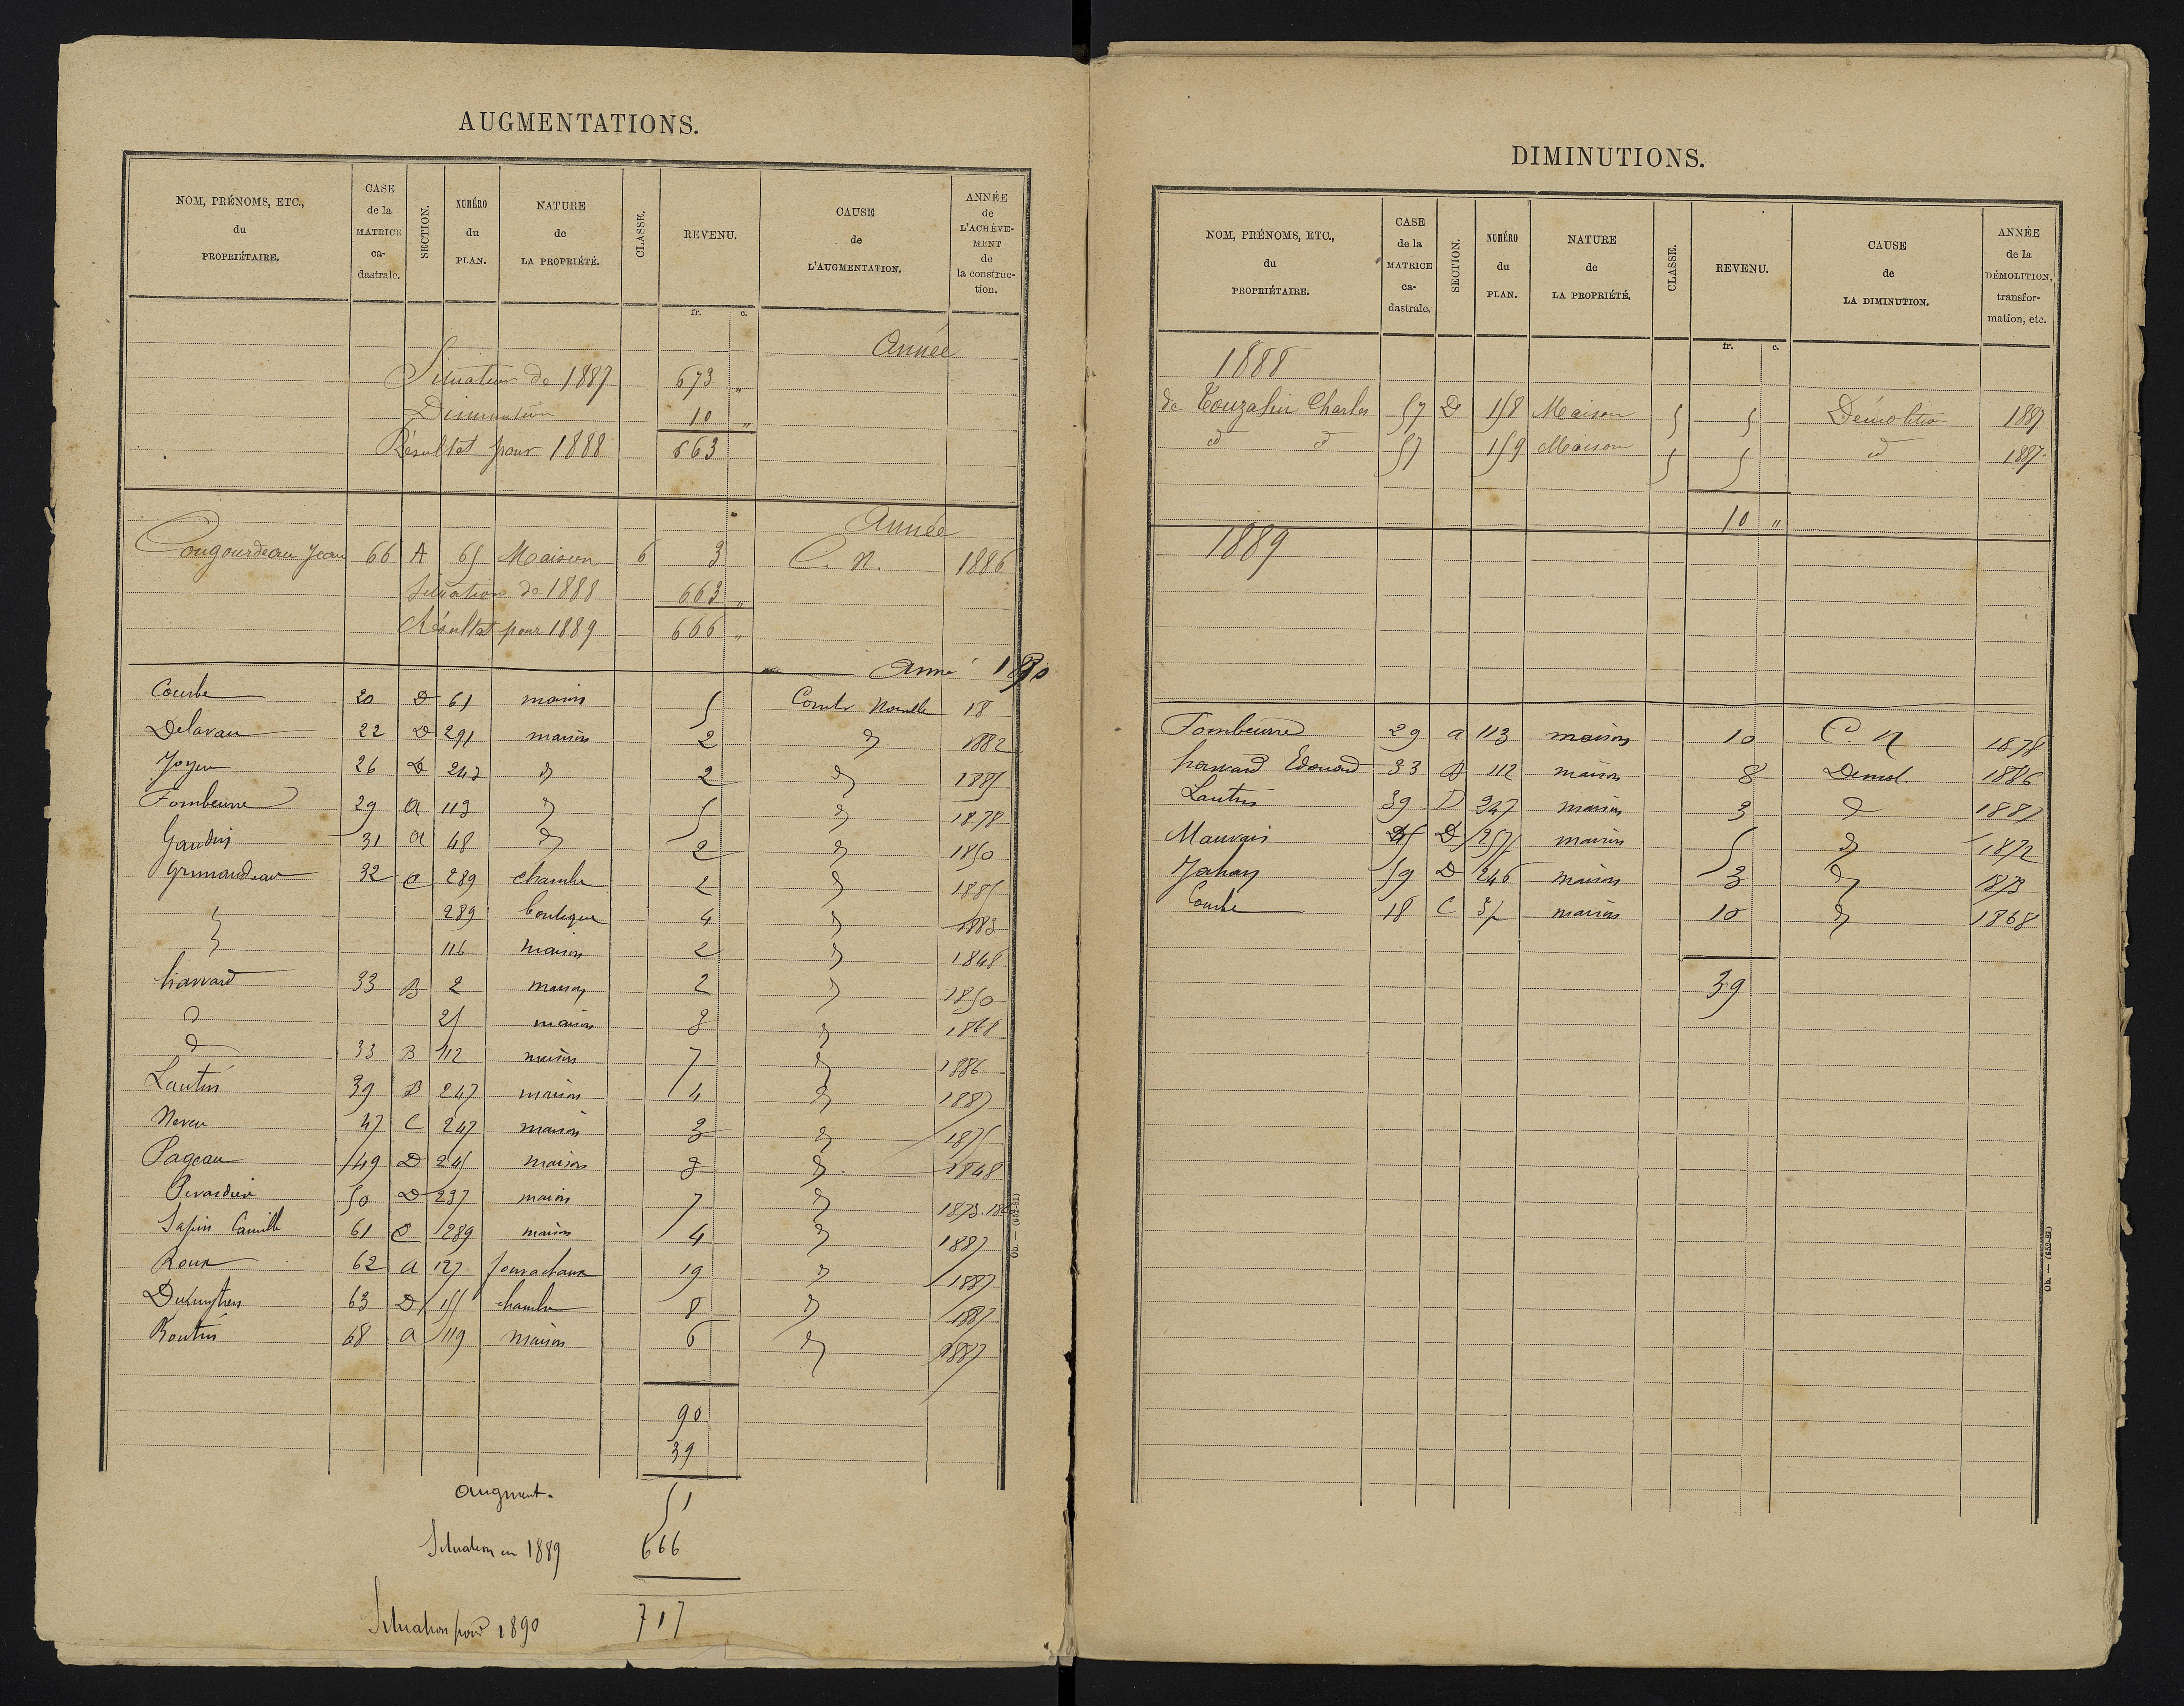 AUGMENTATIONS.
NOM, PRÉNOMS, ETC., du PROPRIÉTAIRE. CASE de la MATRICE ca-dastrale. SECTION. NUMÉRO du PLAN. NATURE de LA PROPRIÉTÉ. CLASSE. REVENU. CAUSE de L'AUGMENTATION. ANNÉE de L'ACHÈVE-MENT de la construc-tion.
fr. c.
Année
Situation de 1887 673 "
Diminution 10 "
Résultat pour 1888 663
Année
Cougourdeau Jean 66 A 65 Maison 6 3 C. N. 1886
Situation de 1888 663 "
Résultat pour 1889 666 "
Année 1890
Courbe 20 D 61 maison 5 Constr Nouvelle 18
Delavau 22 D 291 maison 2 d 1882
26 D 247 d 2 d 1885
Fombeurre 29 a 113 d 5 d 1878
Gaudin 31 a 48 d 2 d 1850
Grimaudeau 32 C 289 chambre 2 d 1885
289 boutique 4 d 1883
116 maison 2 d 1848
33 B 2 maison 2 d 1850
d 25 maison 3 d 1868
d 33 B 112 maison 7 d 1886
Lautin 39 B 247 maison 4 d 1887
Neveu 47 C 247 maison 3 d 1875
Pageau 49 D 245 maison 3 d 1848
50 D 237 maison 7 d 1873.
Sapin Camille 61 C 289 maison 4 d 1887
Roux 62 a 127 19 d 1887
63 D 155 chambre 8 d 1887
Routin 68 a 119 maison 6 d 1887
90
39
Augment. 51
Situation en 1889 666
Situation pour 1890 717
Ob. — (652-81)
DIMINUTIONS.
NOM, PRÉNOMS, ETC., du PROPRIÉTAIRE. CASE de la MATRICE ca-dastrale. SECTION. NUMÉRO du PLAN. NATURE de LA PROPRIÉTÉ. CLASSE. REVENU. CAUSE de LA DIMINUTION. ANNÉE de la DÉMOLITION, transfor-mation, etc.
fr. c.
1888
de Touzalin Charles 57 D 158 Maison 5 5 Démolition 1887
d d 57 159 Maison 5 5 d 1887
10 "
1889
Fombeurre 29 a 113 maison 10 C. N 1878
Edouard 33 B 112 maison 8 Demol. 1886
Lautin 39 D 247 maison 3 d 1887
Mauvais 45 D 257 maison 5 d 1872
Jahan 59 D 246 maison 3 d 1873
Courbe 18 C 35 maison 10 d 1868
39
Ob. — (652-81)